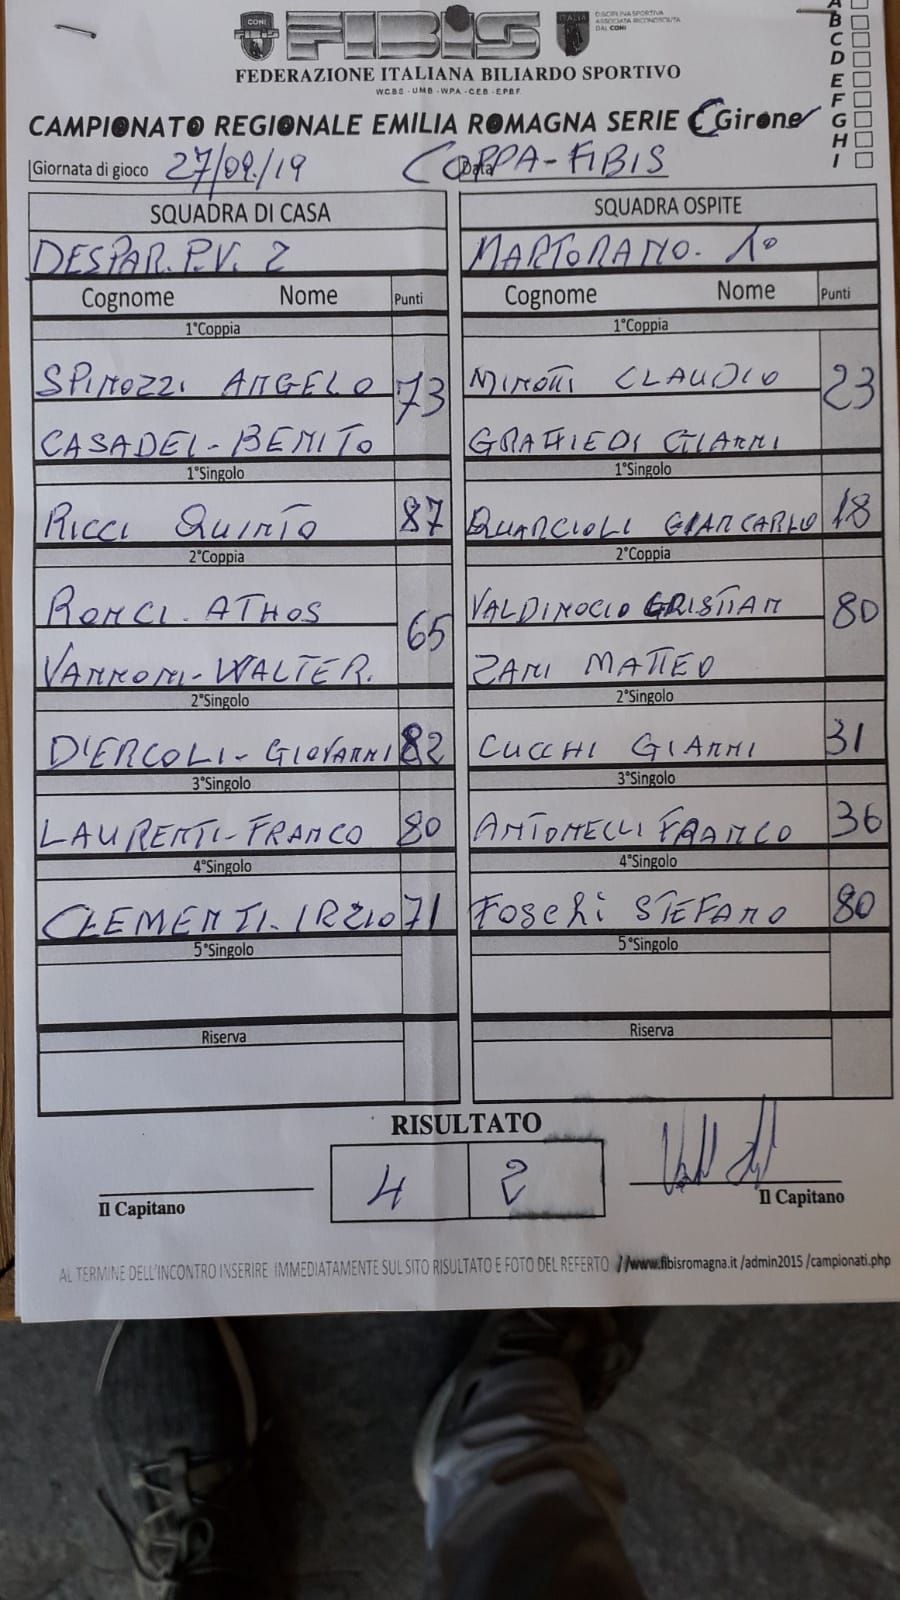 CONI FIBIS ITALIA DISCIPLINA SPORTIVA
ASSOCIATA RICONOSCIUTA
DAL CONI
FEDERAZIONE ITALIANA BILIARDO SPORTIVO
W.C.B.S - U.M.B - W.P.A - C.E.B - E.P.B.F.
A
B
C
D
E
F
G
H
I
CAMPIONATO REGIONALE EMILIA ROMAGNA SERIE C Girone
Giornata di gioco 27/09/19 Data COPPA-FIBIS
SQUADRA DI CASA SQUADRA OSPITE
DESPAR. P.V. 2 MARTORANO. 1°
Cognome Nome Punti Cognome Nome Punti
1°Coppia 1°Coppia
SPINOZZI ANGELO 73 MINOTTI CLAUDIO 23
CASADEI-BENITO GRAFFIEDI GIANNI
1°Singolo 1°Singolo
RICCI QUINTO 87 QUARCIOLI GIANCARLO 18
2°Coppia 2°Coppia
RONCI. ATHOS 65 VALDINOCIO CRISTIAN 80
VANNONI-WALTER. ZANI MATTEO
2°Singolo 2°Singolo
D'ERCOLI-GIOVANNI 82 CUCCHI GIANNI 31
3°Singolo 3°Singolo
LAURENTI-FRANCO 80 ANTONELLI FRANCO 36
4°Singolo 4°Singolo
CLEMENTI. IRZIO 71 FOSCHI STEFANO 80
5°Singolo 5°Singolo
Riserva Riserva
RISULTATO
4 2
Il Capitano Il Capitano
AL TERMINE DELL'INCONTRO INSERIRE IMMEDIATAMENTE SUL SITO RISULTATO E FOTO DEL REFERTO //www.fibisromagna.it /admin2015 /campionati.php